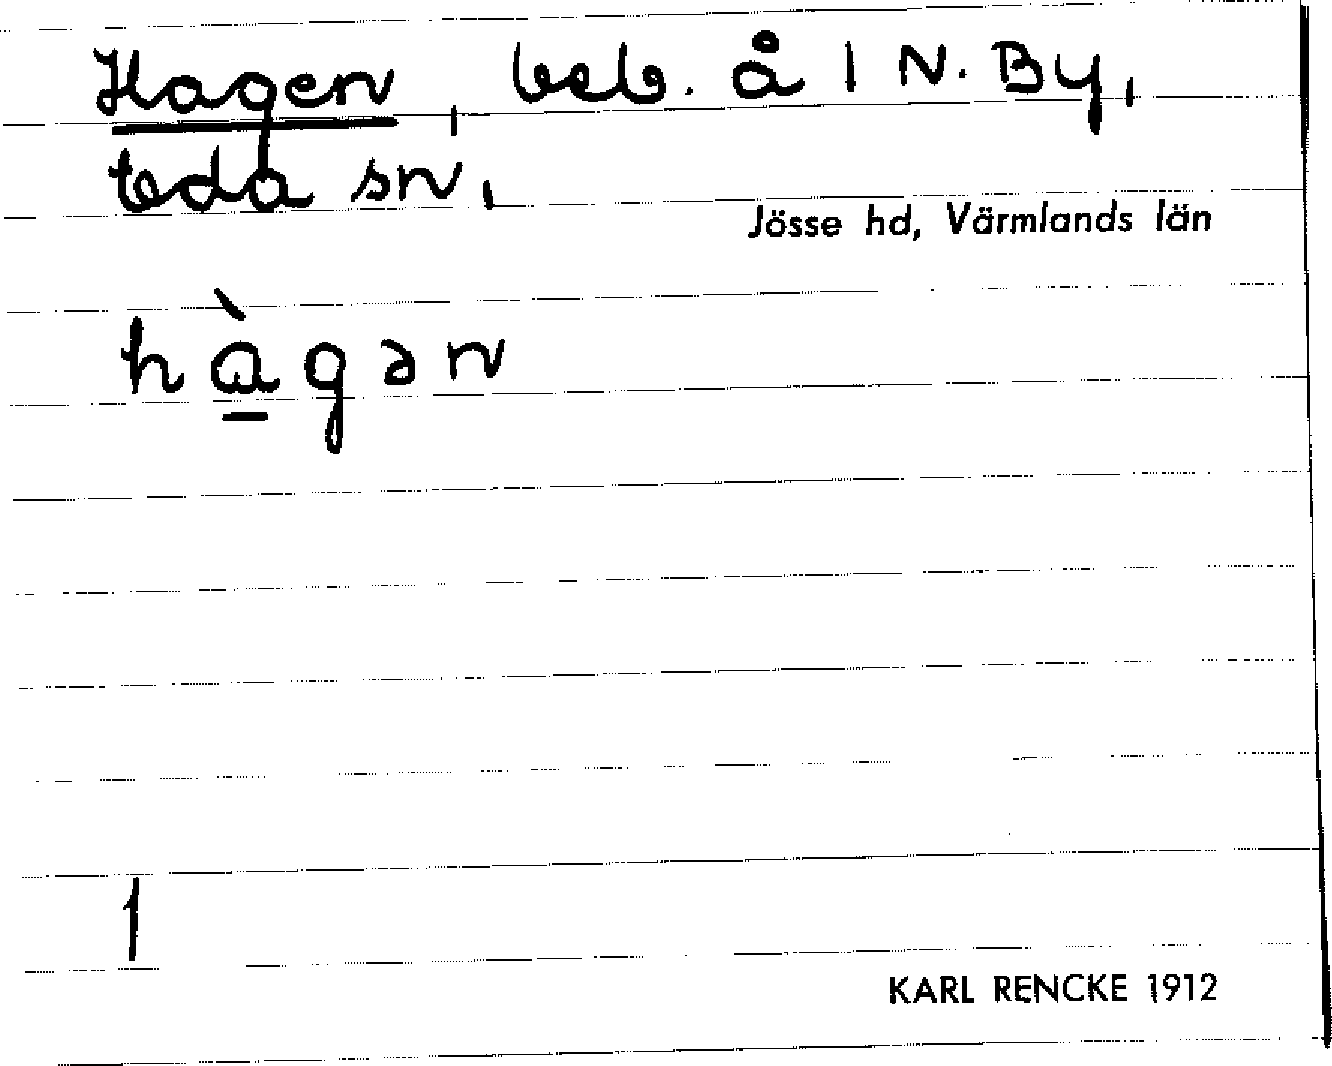 Hagen, beb. å 1 N. By,
Eda sn,
Jösse hd, Värmlands län
hà̱gən
1
KARL RENCKE 1912